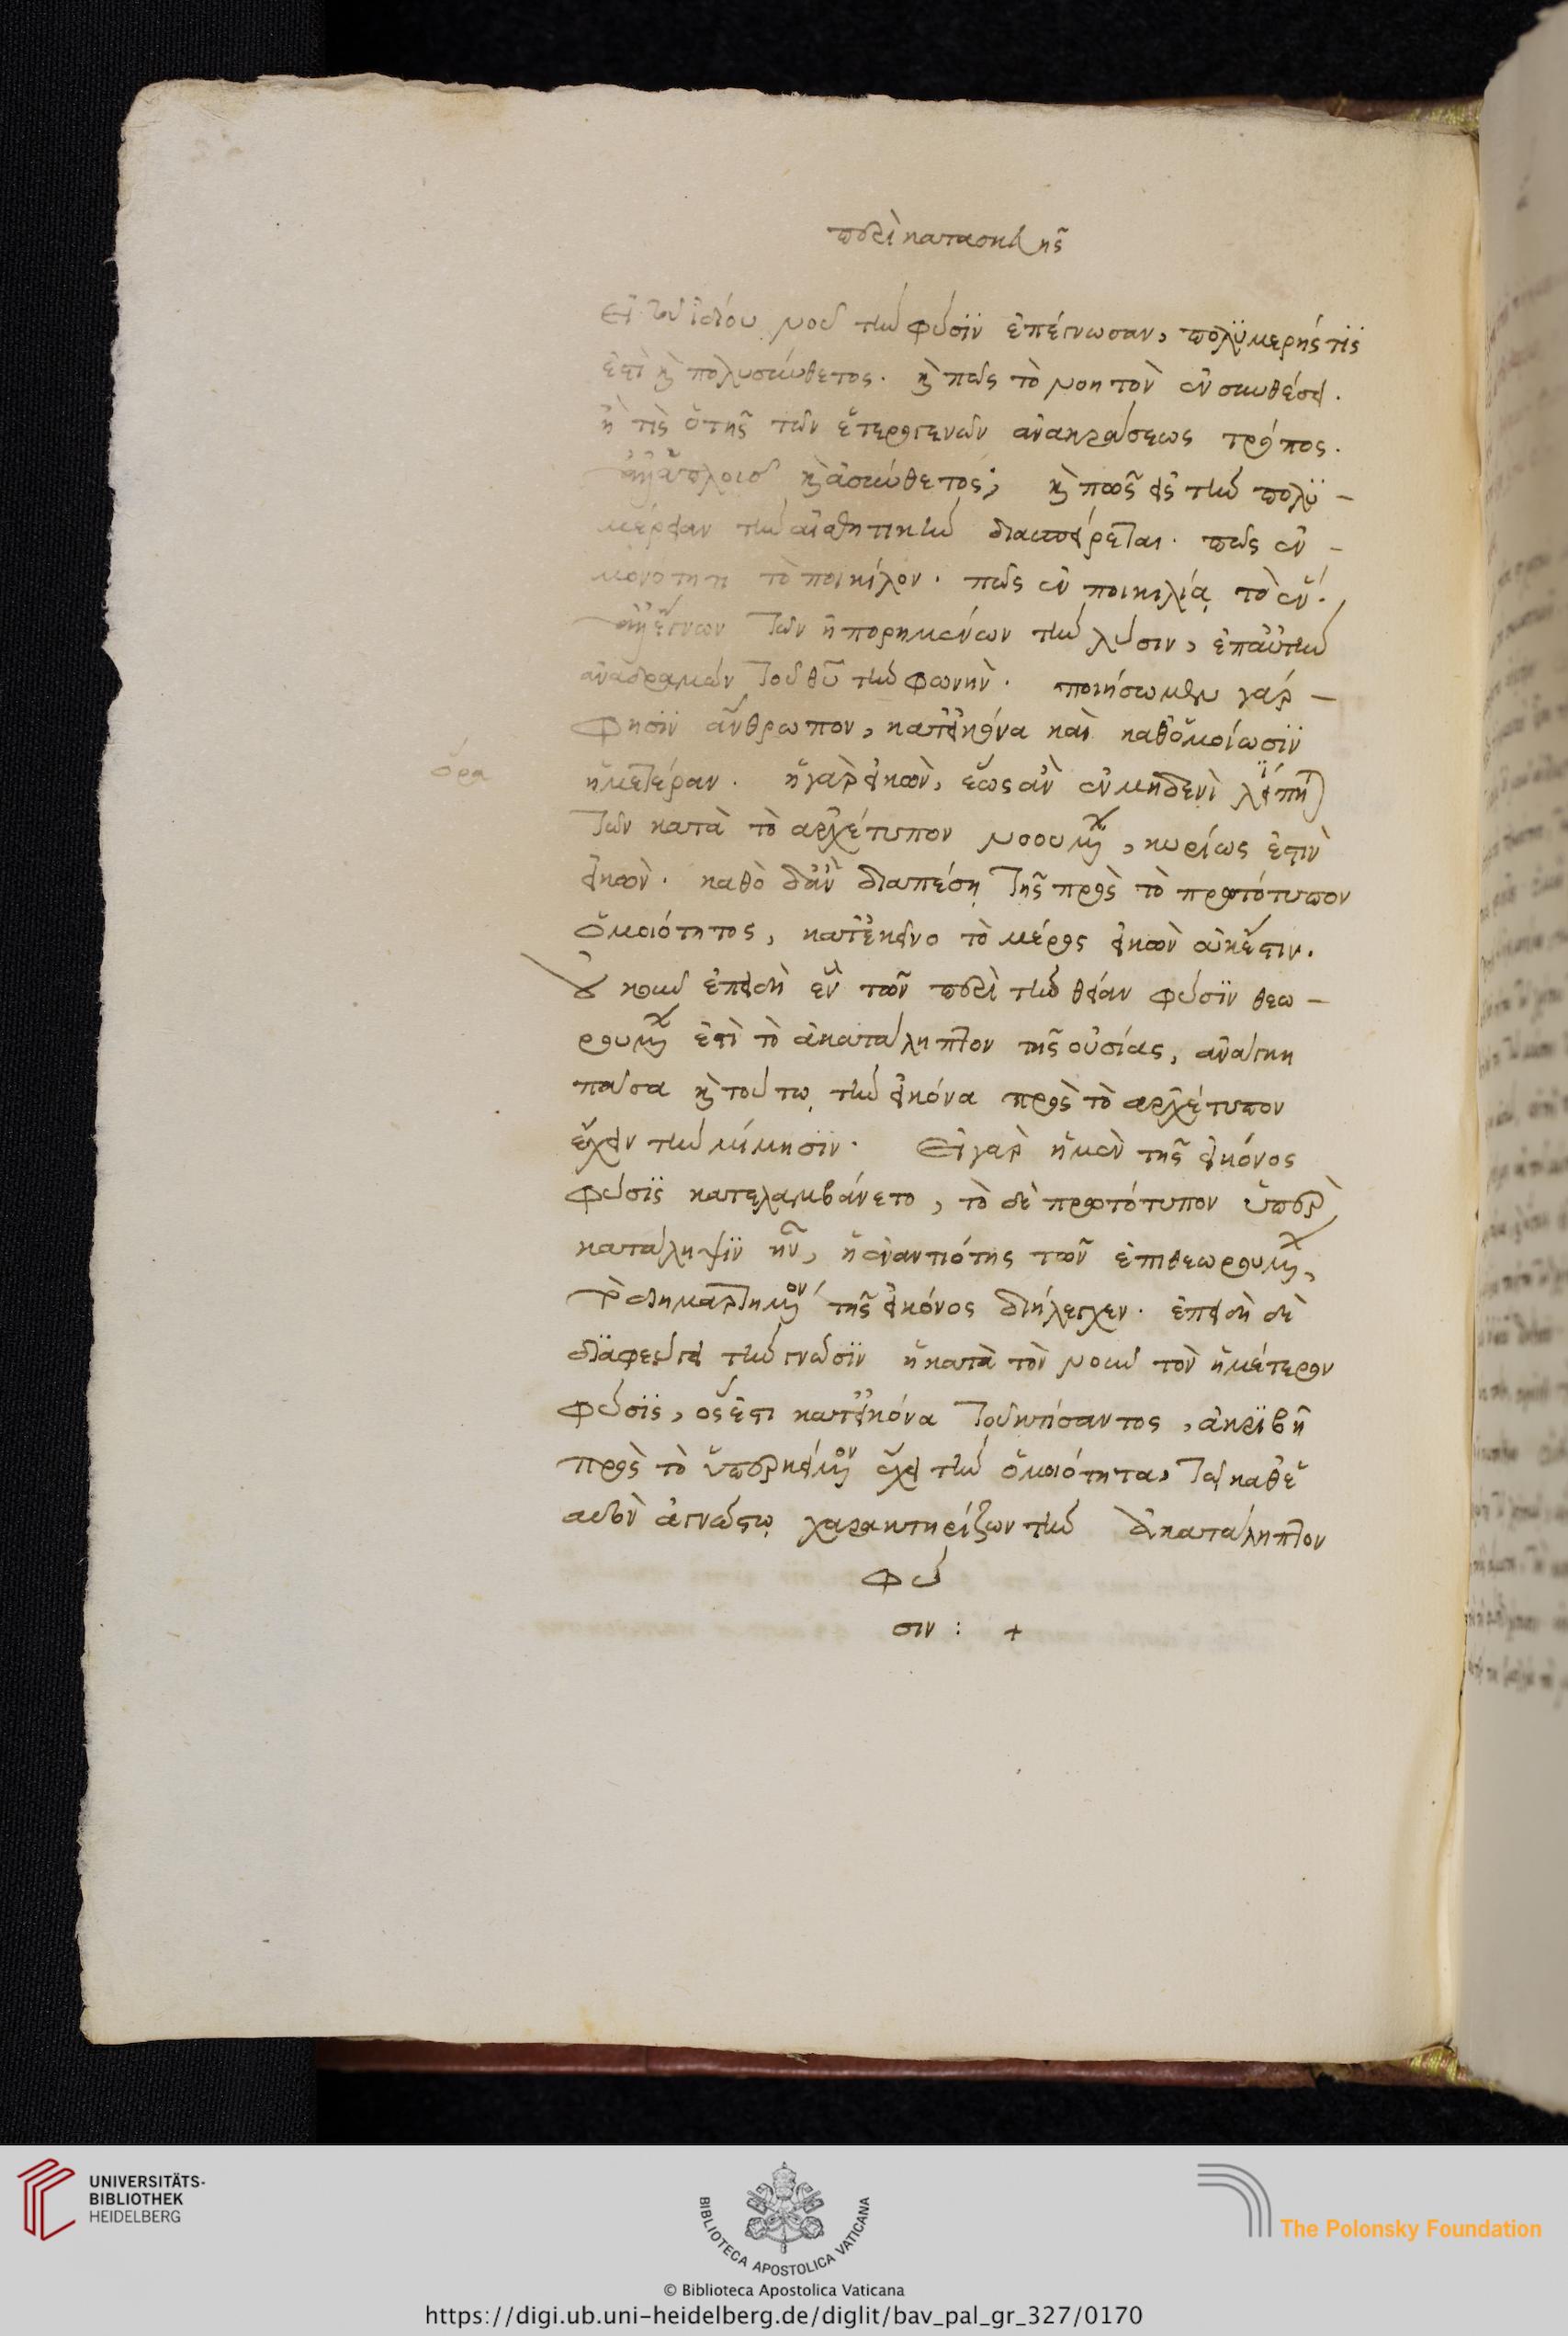 περὶ κατασκευῆς
εἰ τοῦ ἰδίου νοῦ τὴν φύσϊν ἐπέγνωσαν, πολϋμερής τϊς
ἐστὶ καὶ πολυσύνθετος. καὶ πῶς τὸ νοητὸν ἐν συνθέσει.
ἢ τὶς ὁ τῆς τῶν ἑτερογενῶν ἀνακράσεως τρόπος.
ἀλλ' ἁπλοῦς καὶ ἀσύνθετος; καὶ πῶς εἰς τὴν πολϋ -
μέρειαν τὴν αἰσθητικὴν διασπείρεται. πῶς ἐν -
μονότητι τὸ ποικίλον. πῶς ἐν ποικιλίᾳ τὸ ἕν.
ἀλλ' ἔγνων τῶν ἠπορημένων τὴν λύσιν, ἐπ' αὐτὴν
ἀναδραμὼν τοῦ θυ τὴν φωνὴν. ποιήσωμεν γὰρ -
φησϊν ἄνθρωπον, κατ' εἰκόνα καὶ καθ' ὁμοίωσϊν
ὅρα
ἡμετέραν. ἡ γὰρ εἰκὼν, ἕως ἂν ἐν μηδενὶ λείπηται
τῶν κατὰ τὸ ἀρχέτυπον νοουμένων, κυρίως ἐστὶν
εἰκὼν. καθὸ δ' ἂν διαπέσῃ τῆς πρὸς τὸ πρωτότυπον
ὁμοιότητος, κατ' ἐκεῖνο τὸ μέρος εἰκὼν οὐκ ἔστιν.
οὐκοῦν ἐπειδὴ ἓν τῶν περὶ τὴν θείαν φύσϊν θεω -
ρουμένων ἐστὶ τὸ ἀκατάληπτον τῆς οὐσίας, ἀνάγκη
πᾶσα καὶ τούτῳ τὴν εἰκόνα πρὸς τὸ ἀρχέτυπον
ἔχειν τὴν μίμησϊν. Εἰ γὰρ ἡ μὲν τῆς εἰκόνος
φύσϊς κατελαμβάνετο, τὸ δὲ πρωτότυπον ὑπὲρ
κατάληψϊν ἦν, ἡ ἐναντιότης τῶν ἐπιθεωρουμένων,
τὸ διημαρτημένον τῆς εἰκόνος διήλεγχεν. ἐπειδὴ δὲ
δϊαφεύγει τὴν γνῶσϊν ἡ κατὰ τὸν νοῦν τὸν ἡμέτερον
φύσϊς, ὅς ἐστι κατ' εἰκόνα τοῦ κτίσαντος, ἀκρϊβῆ
πρὸς τὸ ὑπερκείμενον ἔχει τὴν ὁμοιότητα, τῷ καθ' ἑ
αυτὸν ἀγνώστῳ χαρακτηρίζων τὴν ἀκατάληπτον
φύ
σιν : +
UNIVERSITÄTS-
BIBLIOTHEK
HEIDELBERG
BIBLIOTECA APOSTOLICA VATICANA
The Polonsky Foundation
© Biblioteca Apostolica Vaticana
https://digi.ub.uni-heidelberg.de/diglit/bav_pal_gr_327/0170